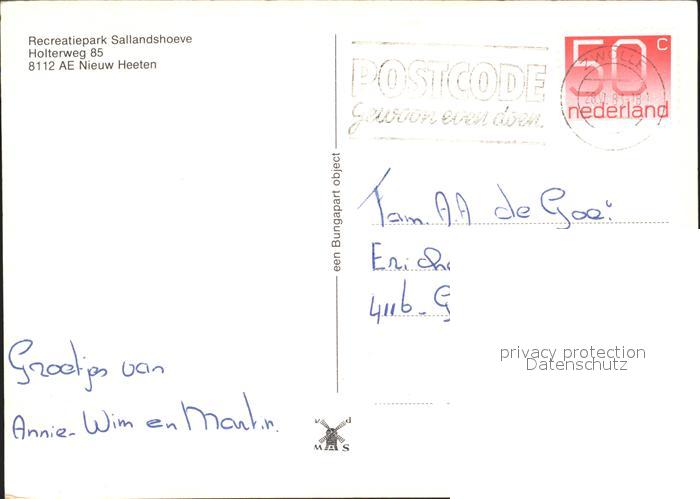 Recreatiepark Sallandshoeve
Holterweg 85
8112 AE Nieuw Heeten
POSTCODE
Gewoon even doen.
ZWOLLE
50 c
nederland
een Bungapart object
Fam. A.A. de Goei
4116-G
privacy protection
Datenschutz
Groetjes van
Annie- Wim en Martin.
v d
M A S